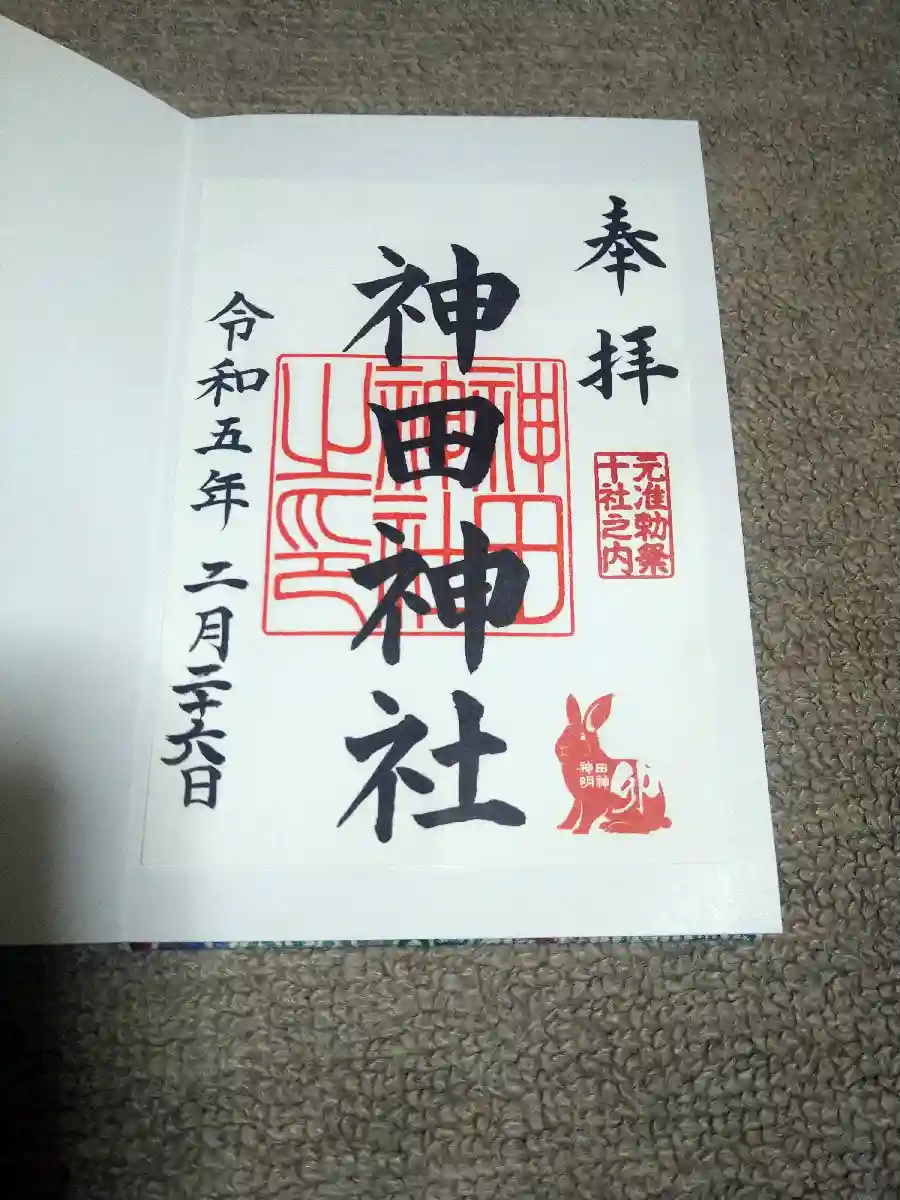 奉拝
元准勅祭
十社之内
神田神社
神田
神社
之印
田神
神明
卯
令和五年 二月二十六日